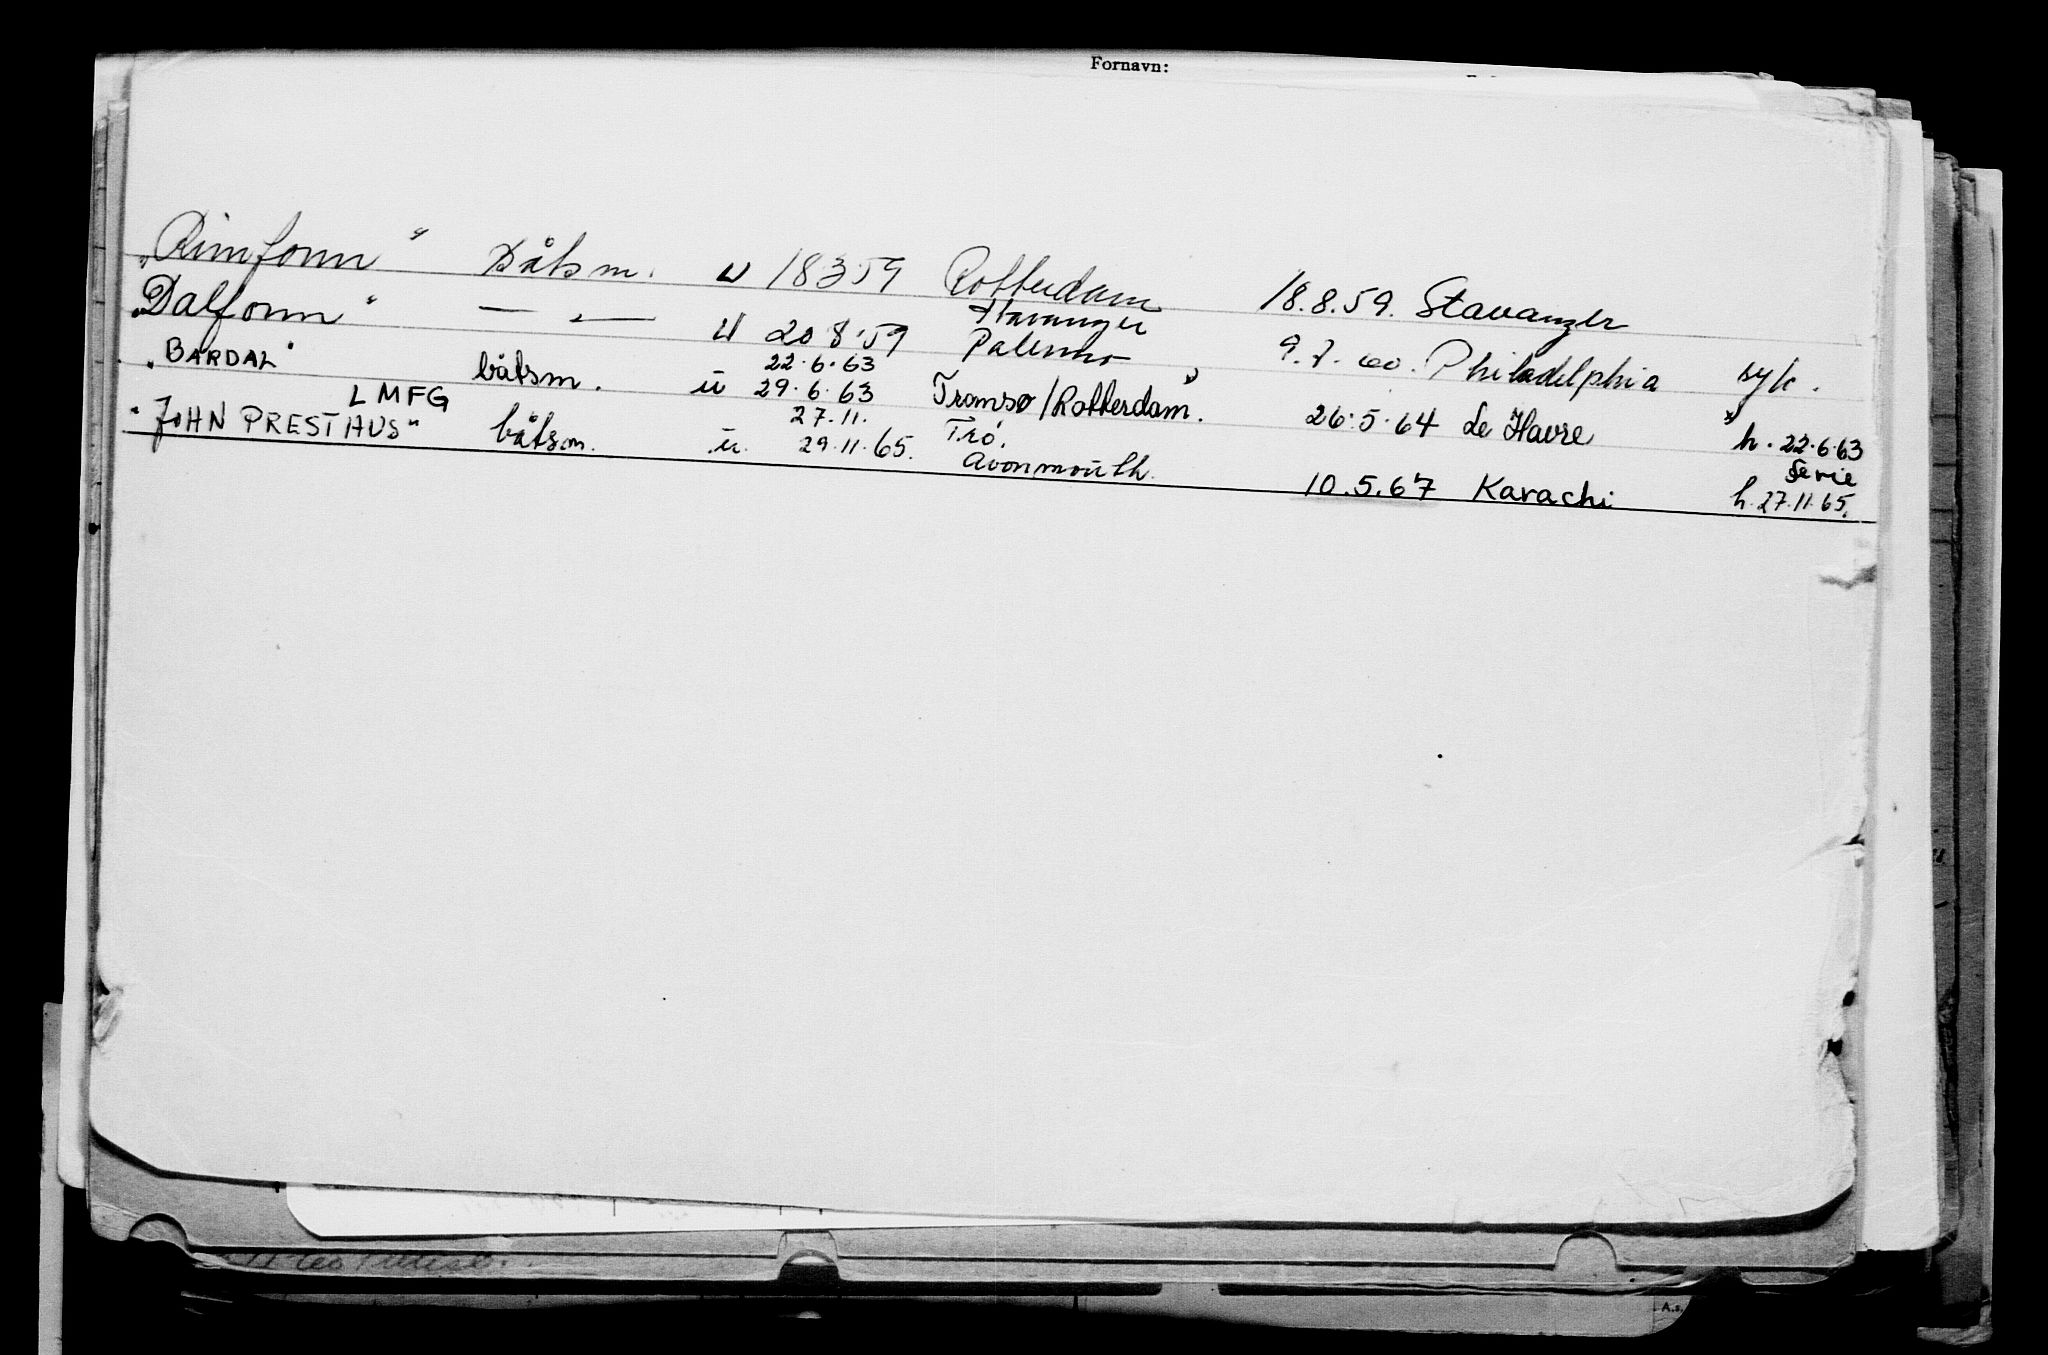 Fornavn:
"Rimfonn" Båtsm. u 18 3 59 Rotterdam 18.8.59. Stavanger
"Dalfonn" — „ — u 20 8 59 Stavanger Palermo 9.7.60. Philadelphia syk.
"BARDAL" båtsm. ü 22.6.63 29.6.63 Tromsø/Rotterdam. 26.5.64 Le Havre h. 22.6.63
LMFG
"JOHN PRESTHUS" båtsm. ü. 27.11. 29.11.65. Trø. Avonmouth. 10.5.67 Karachi h. 27.11.65.
A.s.